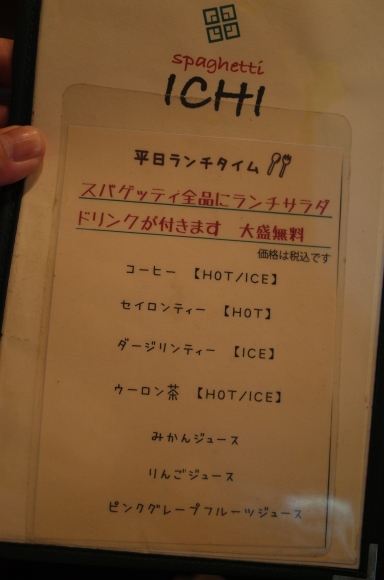 spaghetti
ICHI
平日ランチタイム
スパゲッティ全品にランチサラダ
ドリンクが付きます 大盛無料
価格は税込です
コーヒー 【HOT/ICE】
セイロンティー 【HOT】
ダージリンティー 【ICE】
ウーロン茶 【HOT/ICE】
みかんジュース
りんごジュース
ピンクグレープフルーツジュース